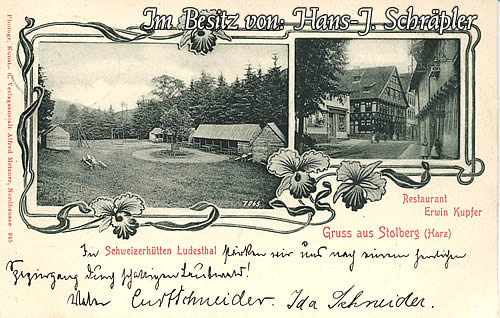 Im Besitz von: Hans-J. Schräpler
Photogr. Kunst- u. Verlagsanstalt Alfred Metzner, Nordhausen 945
7065
Restaurant
Erwin Kupfer
Gruss aus Stolberg (Harz)
In Schweizerhütten Ludesthal stärken wir uns nach einem herrlichen
Spaziergang durch schattigen Laubwald!
Curt Schneider. Ida Schneider.